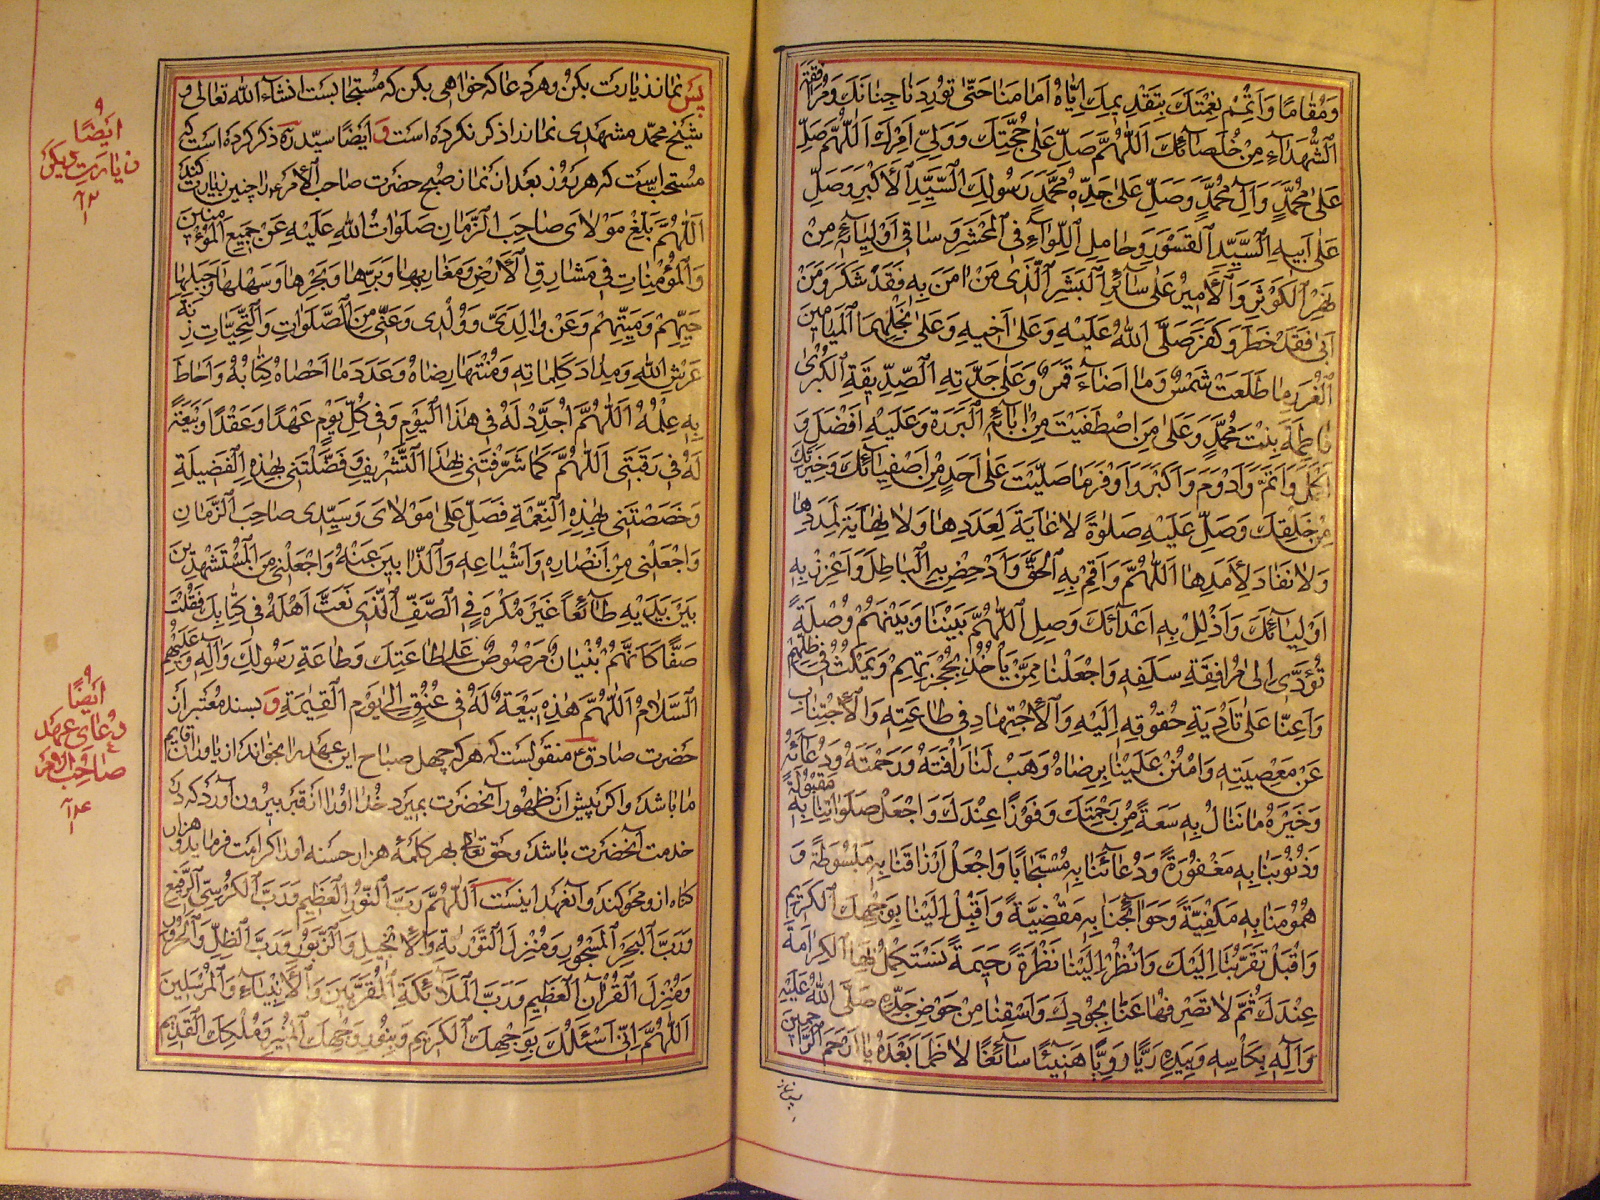 وَمُقَامًا وَاَتْمِمْ نِعْمَتَكَ بِتَقْدِيمِكَ اِيّٰاهُ اَمٰامَنٰا حَتّٰى تُورِدَنٰا جِنٰانَكَ وَمُرٰافَقَةَ
الشُّهَدٰآءِ مِنْ خُلَصٰآئِكَ اَللّٰهُمَّ صَلِّ عَلىٰ حُجَّتِكَ وَوَلِيِّ اَمْرِكَ اَللّٰهُمَّ صَلِّ
عَلىٰ مُحَمَّدٍ وَآلِ مُحَمَّدٍ وَصَلِّ عَلىٰ جَدِّهِ مُحَمَّدٍ رَسُولِكَ السَّيِّدِ الْاَكْبَرِ وَصَلِّ
عَلىٰ اَبِيهِ السَّيِّدِ الْقَسْوَرِ وَحٰامِلِ اللِّوٰآءِ فِى الْمَحْشَرِ وَسٰاقِى اَوْلِيٰآئِهِ مِنْ
نَهَرِ الْكَوْثَرِ وَالْاَمِيرِ عَلىٰ سٰآئِرِ الْبَشَرِ الَّذِى مَنْ اٰمَنَ بِهِ فَقَدْ شَكَرَ وَمَنْ
اَبىٰ فَقَدْ خَطَرَ وَكَفَرَ صَلَّى اللّٰهُ عَلَيْهِ وَعَلىٰ اَخِيهِ وَعَلىٰ نَجْلِهِمَا الْمَيٰامِينِ
الْغُرَرِ مٰا طَلَعَتْ شَمْسٌ وَمٰا اَضٰآءَ قَمَرٌ وَعَلىٰ جَدَّتِهِ الصِّدِّيقَةِ الْكُبْرىٰ
فٰاطِمَةَ بِنْتِ مُحَمَّدٍ وَعَلىٰ مَنِ اصْطَفَيْتَ مِنْ اٰبٰآئِهِ الْبَرَرَةِ وَعَلَيْهِ اَفْضَلَ وَ
اَكْمَلَ وَاَتَمَّ وَاَدْوَمَ وَاَكْبَرَ وَاَوْفَرَ مٰا صَلَّيْتَ عَلىٰ اَحَدٍ مِنْ اَصْفِيٰآئِكَ وَخِيَرَتِكَ
مِنْ خَلْقِكَ وَصَلِّ عَلَيْهِ صَلٰوةً لاٰ غٰايَةَ لِعَدَدِهٰا وَلاٰ نِهٰايَةَ لِمَدَدِهٰا
وَلاٰ نَفٰادَ لِاَمَدِهٰا اَللّٰهُمَّ وَاَقِمْ بِهِ الْحَقَّ وَاَدْحِضْ بِهِ الْبٰاطِلَ وَاَعْزِزْ بِهِ
اَوْلِيٰآئَكَ وَاَذْلِلْ بِهِ اَعْدٰآئَكَ وَصِلِ اللّٰهُمَّ بَيْنَنٰا وَبَيْنَهُمْ وُصْلَةً
تُؤَدِّى اِلىٰ مُرٰافَقَةِ سَلَفِهِ وَاجْعَلْنٰا مِمَّنْ يَأْخُذُ بِحُجْزَتِهِمْ وَيَمْكُثُ فِى ظِلِّهِمْ
وَاَعِنّٰا عَلىٰ تَأْدِيَةِ حُقُوقِهِ اِلَيْهِ وَالْاِجْتِهٰادِ فِى طٰاعَتِهِ وَالْاِجْتِنٰابِ
عَنْ مَعْصِيَتِهِ وَامْنُنْ عَلَيْنٰا بِرِضٰاهُ وَهَبْ لَنٰا رَأْفَتَهُ وَرَحْمَتَهُ وَدُعٰآئَهُ
وَخَيْرَهُ مٰا نَنٰالُ بِهِ سَعَةً مِنْ رَحْمَتِكَ وَفَوْزًا عِنْدَكَ وَاجْعَلْ صَلَوٰاتِنٰا بِهِ مَقْبُولَةً
وَذُنُوبَنٰا بِهِ مَغْفُورَةً وَدُعٰآئَنٰا بِهِ مُسْتَجٰابًا وَاجْعَلْ اَرْزٰاقَنٰا بِهِ مَبْسُوطَةً وَ
هُمُومَنٰا بِهِ مَكْفِيَّةً وَحَوٰآئِجَنٰا بِهِ مَقْضِيَّةً وَاَقْبِلْ اِلَيْنٰا بِوَجْهِكَ الْكَرِيمِ
وَاقْبَلْ تَقَرُّبَنٰا اِلَيْكَ وَانْظُرْ اِلَيْنٰا نَظْرَةً رَحِيمَةً نَسْتَكْمِلُ بِهَا الْكَرٰامَةَ
عِنْدَكَ ثُمَّ لاٰ تَصْرِفْهٰا عَنّٰا بِجُودِكَ وَاسْقِنٰا مِنْ حَوْضِ جَدِّهِ صَلَّى اللّٰهُ عَلَيْهِ
وَآلِهِ بِكَأْسِهِ وَبِيَدِهِ رَيًّا رَوِيًّا هَنِيئًا سٰآئِغًا لاٰ ظَمَأَ بَعْدَهُ يٰا اَرْحَمَ الرّٰاحِمِينَ
پس نماز
پس نماز زيارت بكن و هر دعا كه خواهى بكن كه مستجابست انشآء اللّٰه تعالى و
شيخ محمّد مشهدى نماز را ذكر نكرده است و ايضًا سيّد ره ذكر كرده است كه
مستحب است كه هر روز بعد از نماز صبح حضرت صاحب الأمر ع را چنين زيارت كنند
اَللّٰهُمَّ بَلِّغْ مَوْلاٰى صٰاحِبَ الزَّمٰانِ صَلَوٰاتُ اللّٰهِ عَلَيْهِ عَنْ جَمِيعِ الْمُؤْمِنِينَ
وَالْمُؤْمِنٰاتِ فِى مَشٰارِقِ الْاَرْضِ وَمَغٰارِبِهٰا وَبَرِّهٰا وَبَحْرِهٰا وَسَهْلِهٰا وَجَبَلِهٰا
حَيِّهِمْ وَمَيِّتِهِمْ وَعَنْ وٰالِدَىَّ وَوُلْدِى وَعَنِّى مِنَ الصَّلَوٰاتِ وَالتَّحِيّٰاتِ زِنَةَ
عَرْشِ اللّٰهِ وَمِدٰادَ كَلِمٰاتِهِ وَمُنْتَهىٰ رِضٰاهُ وَعَدَدَ مٰا اَحْصٰاهُ كِتٰابُهُ وَاَحٰاطَ
بِهِ عِلْمُهُ اَللّٰهُمَّ اُجَدِّدُ لَهُ فِى هٰذَا الْيَوْمِ وَفِى كُلِّ يَوْمٍ عَهْدًا وَعَقْدًا وَبَيْعَةً
لَهُ فِى رَقَبَتِى اَللّٰهُمَّ كَمٰا شَرَّفْتَنِى بِهٰذَا التَّشْرِيفِ وَفَضَّلْتَنِى بِهٰذِهِ الْفَضِيلَةِ
وَخَصَصْتَنِى بِهٰذِهِ النِّعْمَةِ فَصَلِّ عَلىٰ مَوْلاٰىَ وَسَيِّدِى صٰاحِبِ الزَّمٰانِ
وَاجْعَلْنِى مِنْ اَنْصٰارِهِ وَاَشْيٰاعِهِ وَالذّٰابِّينَ عَنْهُ وَاجْعَلْنِى مِنَ الْمُسْتَشْهَدِينَ
بَيْنَ يَدَيْهِ طٰآئِعًا غَيْرَ مُكْرَهٍ فِى الصَّفِّ الَّذِى نَعَتَّ اَهْلَهُ فِى كِتٰابِكَ فَقُلْتَ
صَفًّا كَاَنَّهُمْ بُنْيٰانٌ مَرْصُوصٌ عَلىٰ طٰاعَتِكَ وَطٰاعَةِ رَسُولِكَ وَآلِهِ عَلَيْهِمُ
السَّلاٰمُ اَللّٰهُمَّ هٰذِهِ بَيْعَةٌ لَهُ فِى عُنُقِى اِلىٰ يَوْمِ الْقِيٰمَةِ و بسند معتبر از
حضرت صادق ع منقولست كه هر كه چهل صباح اين عهد را بخواند از ياوران قايم
ما باشد و اگر پيش از ظهور آنحضرت بميرد خدا او را از قبر بيرون آورد كه در
خدمت آنحضرت باشد و حق تعالى بهر كلمهٔ هزار حسنه او را كرامت فرمايد و هزار
گناه از او محو كند و آنعهد اينست اَللّٰهُمَّ رَبَّ النُّورِ الْعَظِيمِ وَرَبَّ الْكُرْسِىِّ الرَّفِيعِ
وَرَبَّ الْبَحْرِ الْمَسْجُورِ وَمُنْزِلَ التَّوْرٰيةِ وَالْاِنْجِيلِ وَالزَّبُورِ وَرَبَّ الظِّلِّ وَالْحَرُورِ
وَمُنْزِلَ الْقُرْاٰنِ الْعَظِيمِ وَرَبَّ الْمَلاٰئِكَةِ الْمُقَرَّبِينَ وَالْاَنْبِيٰآءِ وَالْمُرْسَلِينَ
اَللّٰهُمَّ اِنِّى اَسْئَلُكَ بِوَجْهِكَ الْكَرِيمِ وَبِنُورِ وَجْهِكَ الْمُنِيرِ وَمُلْكِكَ الْقَدِيمِ
و ايضًا
زيارت ديگر
و ايضًا
دعاى عهد
صاحب الأمر ع